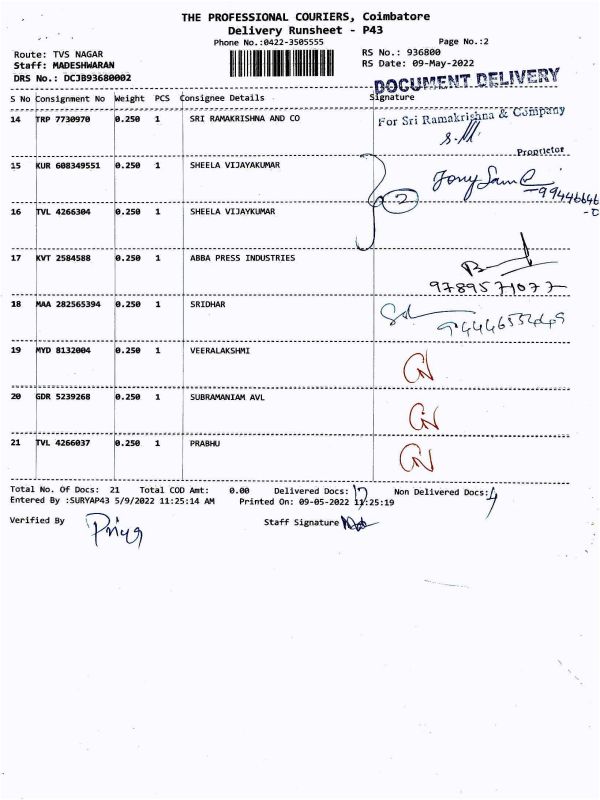 THE PROFESSIONAL COURIERS, Coimbatore
Delivery Runsheet - P43
Phone No.:0422-3505555
Page No.:2
Route: TVS NAGAR
RS No.: 936800
Staff: MADESHWARAN
RS Date: 09-May-2022
DRS No.: DCJB93680002
DOCUMENT DELIVERY
S No Consignment No Weight PCS Consignee Details Signature
14 TRP 7730970 0.250 1 SRI RAMAKRISHNA AND CO
For Sri Ramakrishna & Company
Proprietor
15 KUR 608349551 0.250 1 SHEELA VIJAYAKUMAR
2
16 TVL 4266304 0.250 1 SHEELA VIJAYKUMAR
17 KVT 2584588 0.250 1 ABBA PRESS INDUSTRIES
9789571077
18 MAA 282565394 0.250 1 SRIDHAR
19 MYD 8132004 0.250 1 VEERALAKSHMI
20 GDR 5239268 0.250 1 SUBRAMANIAM AVL
21 TVL 4266037 0.250 1 PRABHU
Total No. Of Docs: 21 Total COD Amt: 0.00 Delivered Docs: 17 Non Delivered Docs: 4
Entered By :SURYAP43 5/9/2022 11:25:14 AM Printed On: 09-05-2022 11:25:19
Verified By Priya Staff Signature